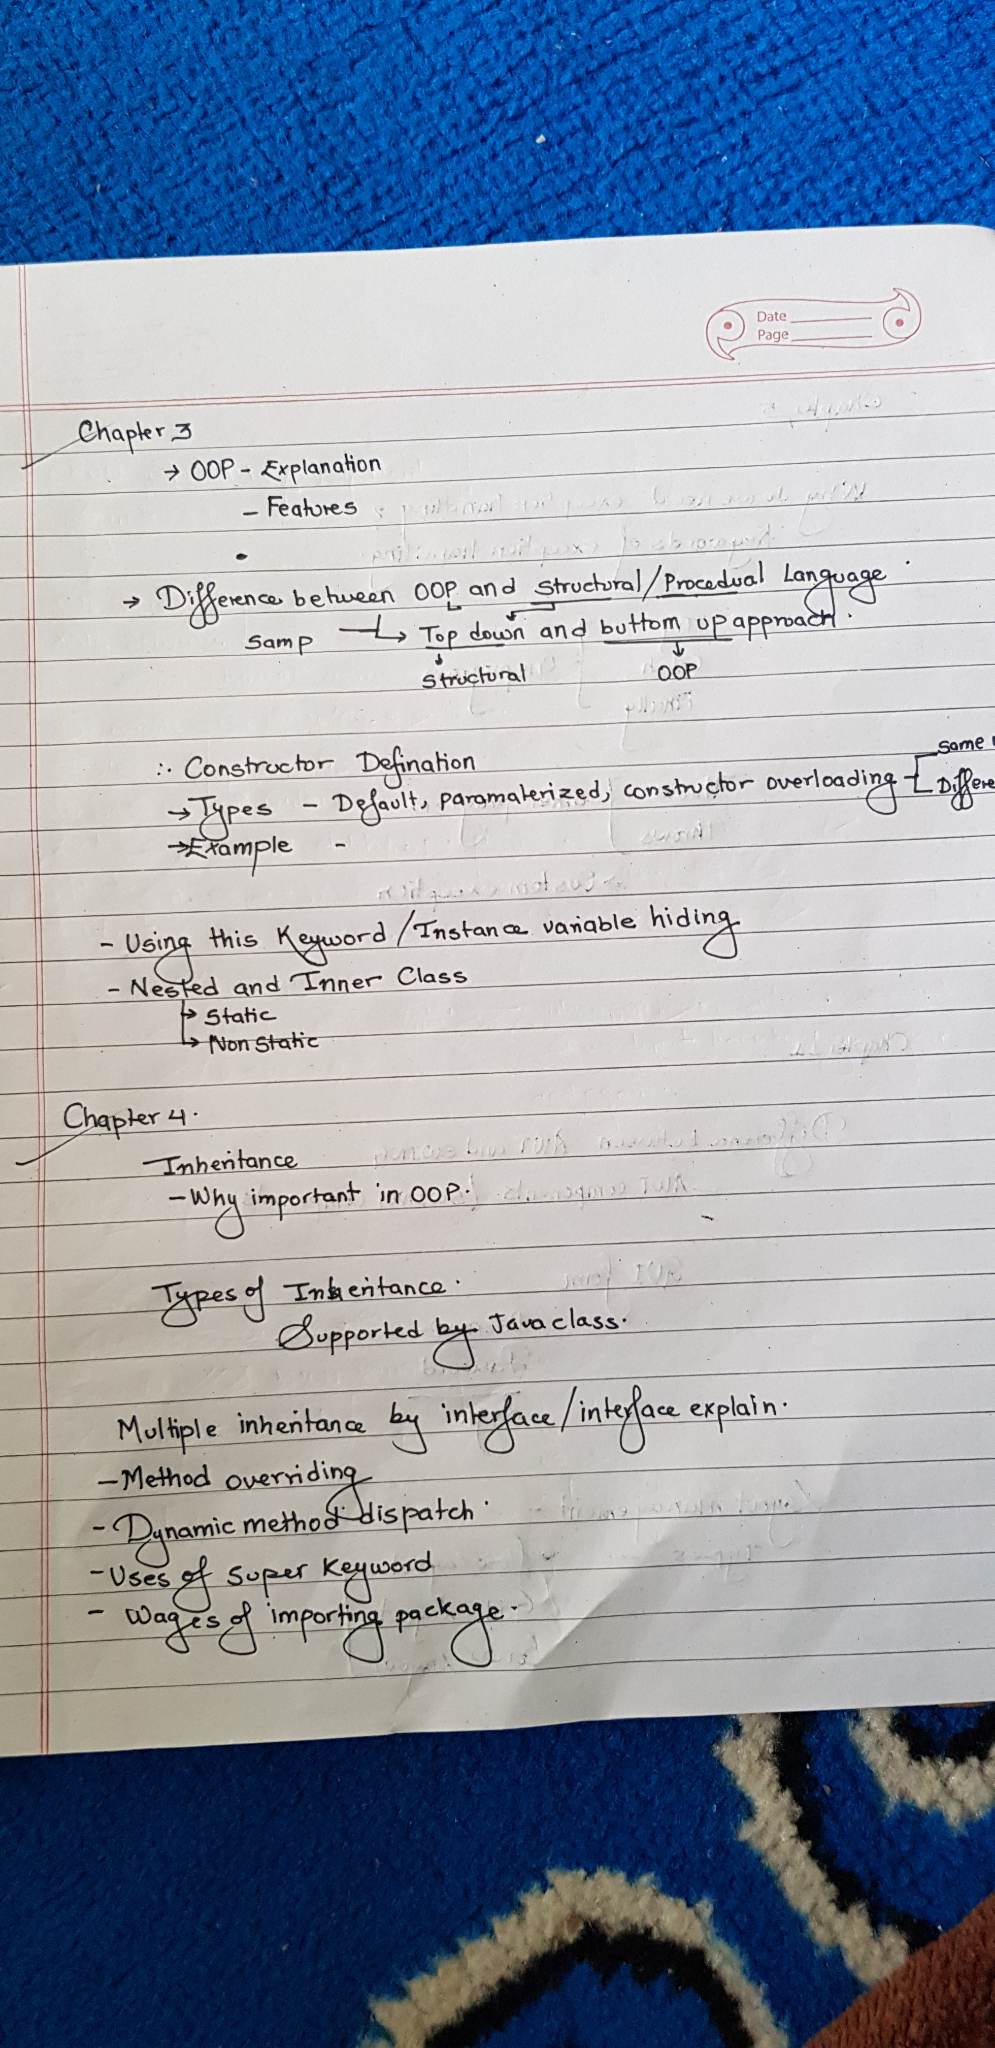 Date
Page
Chapter 3
→ OOP - Explanation
- Features
•
→ Difference between OOP and Structural/Procedual Language
Samp → Top down and buttom up approach.
Structural OOP
∴ Constructor Defination
same
→ Types - Default, paramaterized, constructor overloading
Differe
→ Example -
- Using this Keyword/Instance variable hiding
- Nested and Inner Class
→ Static
→ Non Static
Chapter 4.
Inheritance
- Why important in OOP.
Types of Inheritance.
Supported by Java class.
Multiple inheritance by interface/interface explain.
- Method overriding
- Dynamic method dispatch.
- Uses of Super Keyword
- Wages of importing package.